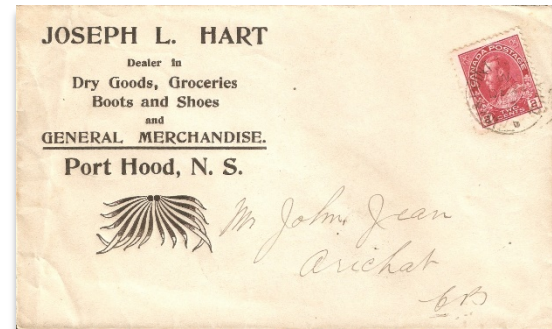 JOSEPH L. HART
Dealer in
Dry Goods, Groceries
Boots and Shoes
and
GENERAL MERCHANDISE.
Port Hood, N. S.
CANADA POSTAGE
2 CENTS 2
Mr John Jean
Arichat
CB